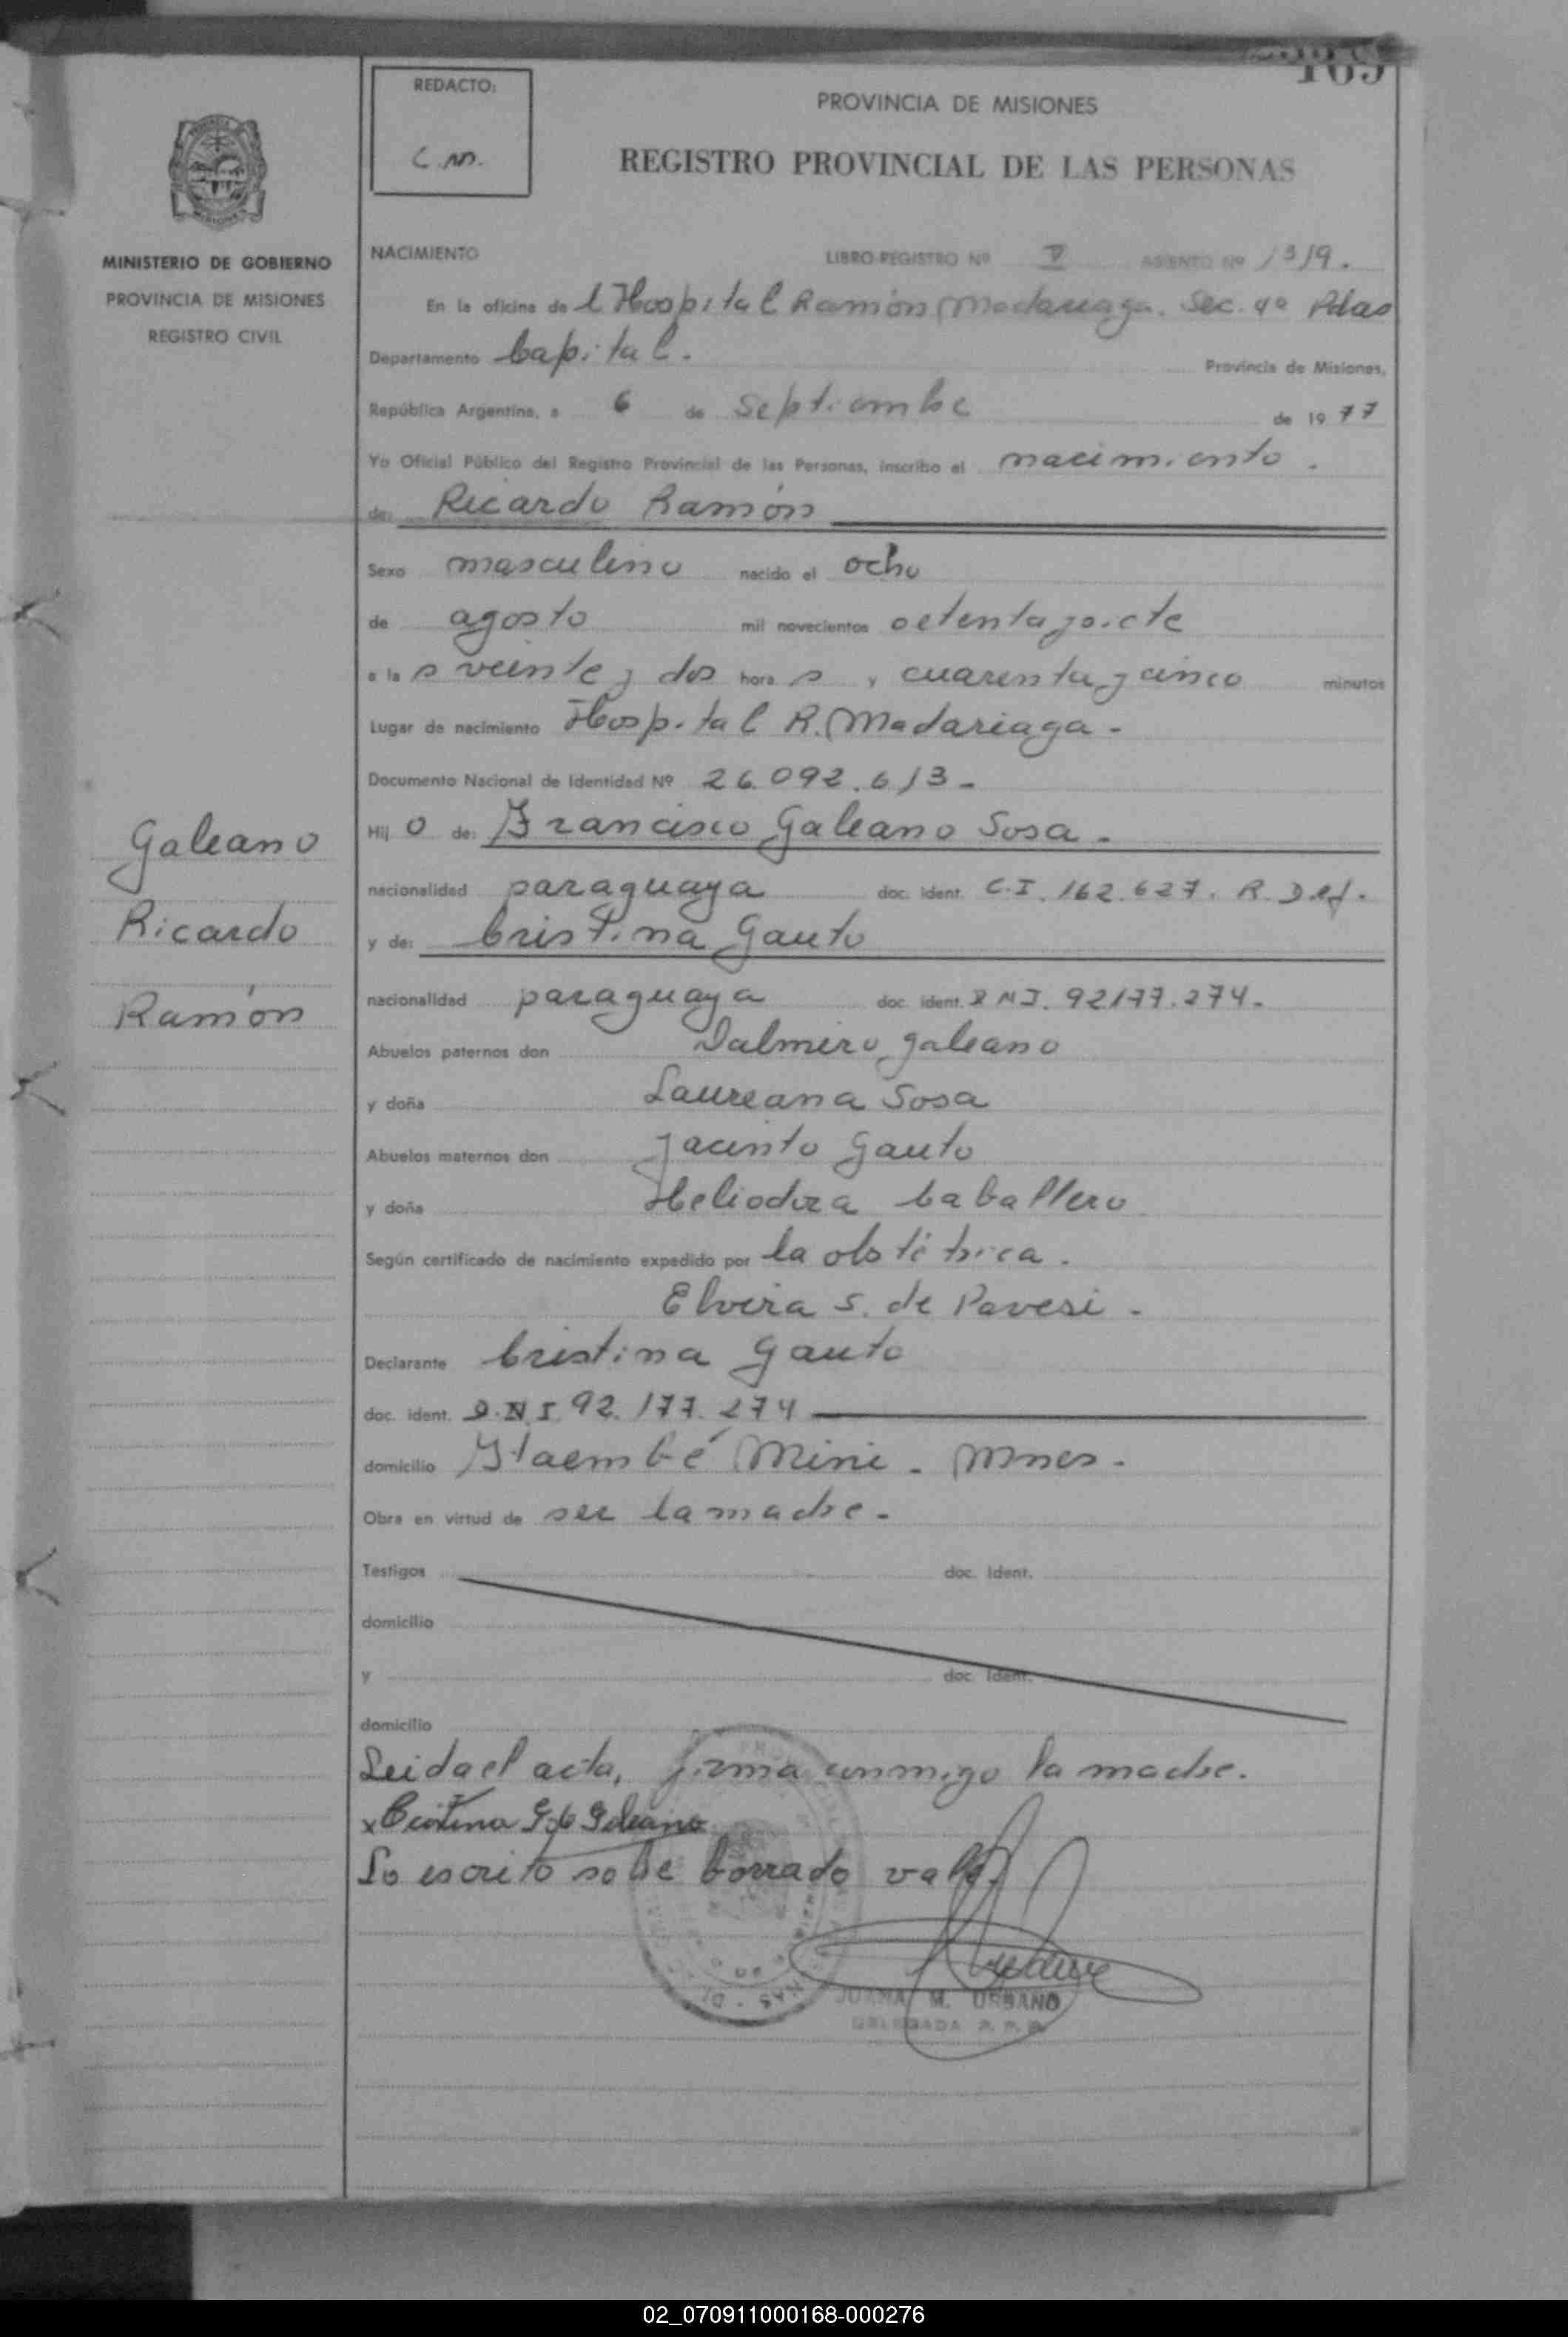 169
REDACTO:
C.M.
PROVINCIA DE MISIONES
REGISTRO PROVINCIAL DE LAS PERSONAS
MINISTERIO DE GOBIERNO
PROVINCIA DE MISIONES
REGISTRO CIVIL
Galeano
Ricardo
Ramón
NACIMIENTO LIBRO-REGISTRO Nº V ASIENTO Nº 1319.
En la oficina de l Hospital Ramón Madariaga. Sec. 4ª Pdas
Departamento Capital. Provincia de Misiones,
República Argentina, a 6 de septiembre de 1977
Yo Oficial Público del Registro Provincial de las Personas, inscribo el nacimiento.
de: Ricardo Ramón
Sexo masculino nacido el ocho
de agosto mil novecientos setenta y siete
a la s veinte y dos hora s y cuarenta y cinco minutos
Lugar de nacimiento Hospital R. Madariaga -
Documento Nacional de Identidad Nº 26.092.613-
Hij o de: Francisco Galeano Sosa.
nacionalidad paraguaya doc. ident. C.I. 162.627. R.
y de: Cristina Gauto
nacionalidad paraguaya doc. ident. DNI. 92177.274.
Abuelos paternos don Dalmiro Galeano
y doña Laureana Sosa
Abuelos maternos don Jacinto Gauto
y doña Heliodora Caballero
Según certificado de nacimiento expedido por la obstétrica.
Elvira S. de Pavesi -
Declarante Cristina Gauto
doc. ident. D.N.I. 92.177.274
domicilio Itaembé Mini - Mnes -
Obra en virtud de ser la madre -
Testigos doc. ident.
domicilio
y doc. ident.
domicilio
Leida el acta, firma conmigo la madre.
x Cristina G. de Galeano
Lo escrito sobre borrado vale.
JUANA M. URBANO
DELEGADA R. P. P.
02_070911000168-000276